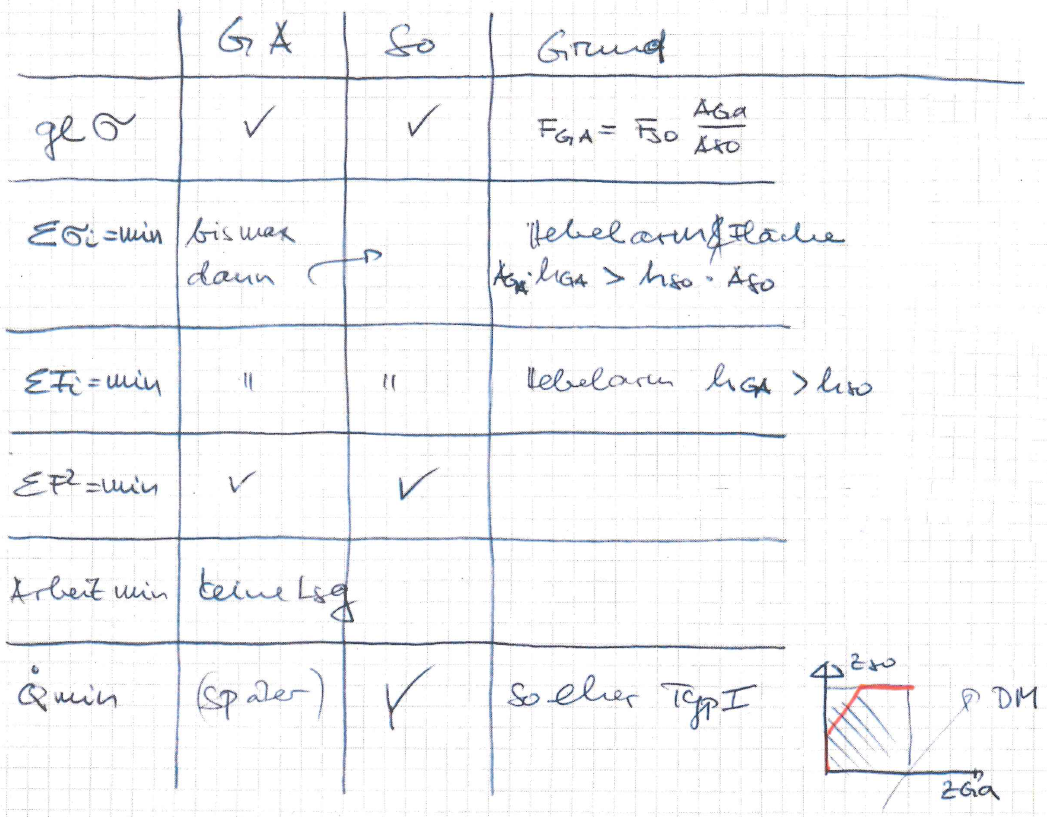 GA So Grund
gl σ ✓ ✓ F_GA = F_SO A_GA/A_SO
Σσi=min bis max Hebelarm & Fläche
dann A_GA·h_GA > h_SO · A_SO
ΣFi=min " " Hebelarm h_GA > h_SO
ΣF²=min ✓ ✓
Arbeit min keine Lsg
Q̇ min (später) ✓ So eher Typ I
z_SO
DM
z_Ga